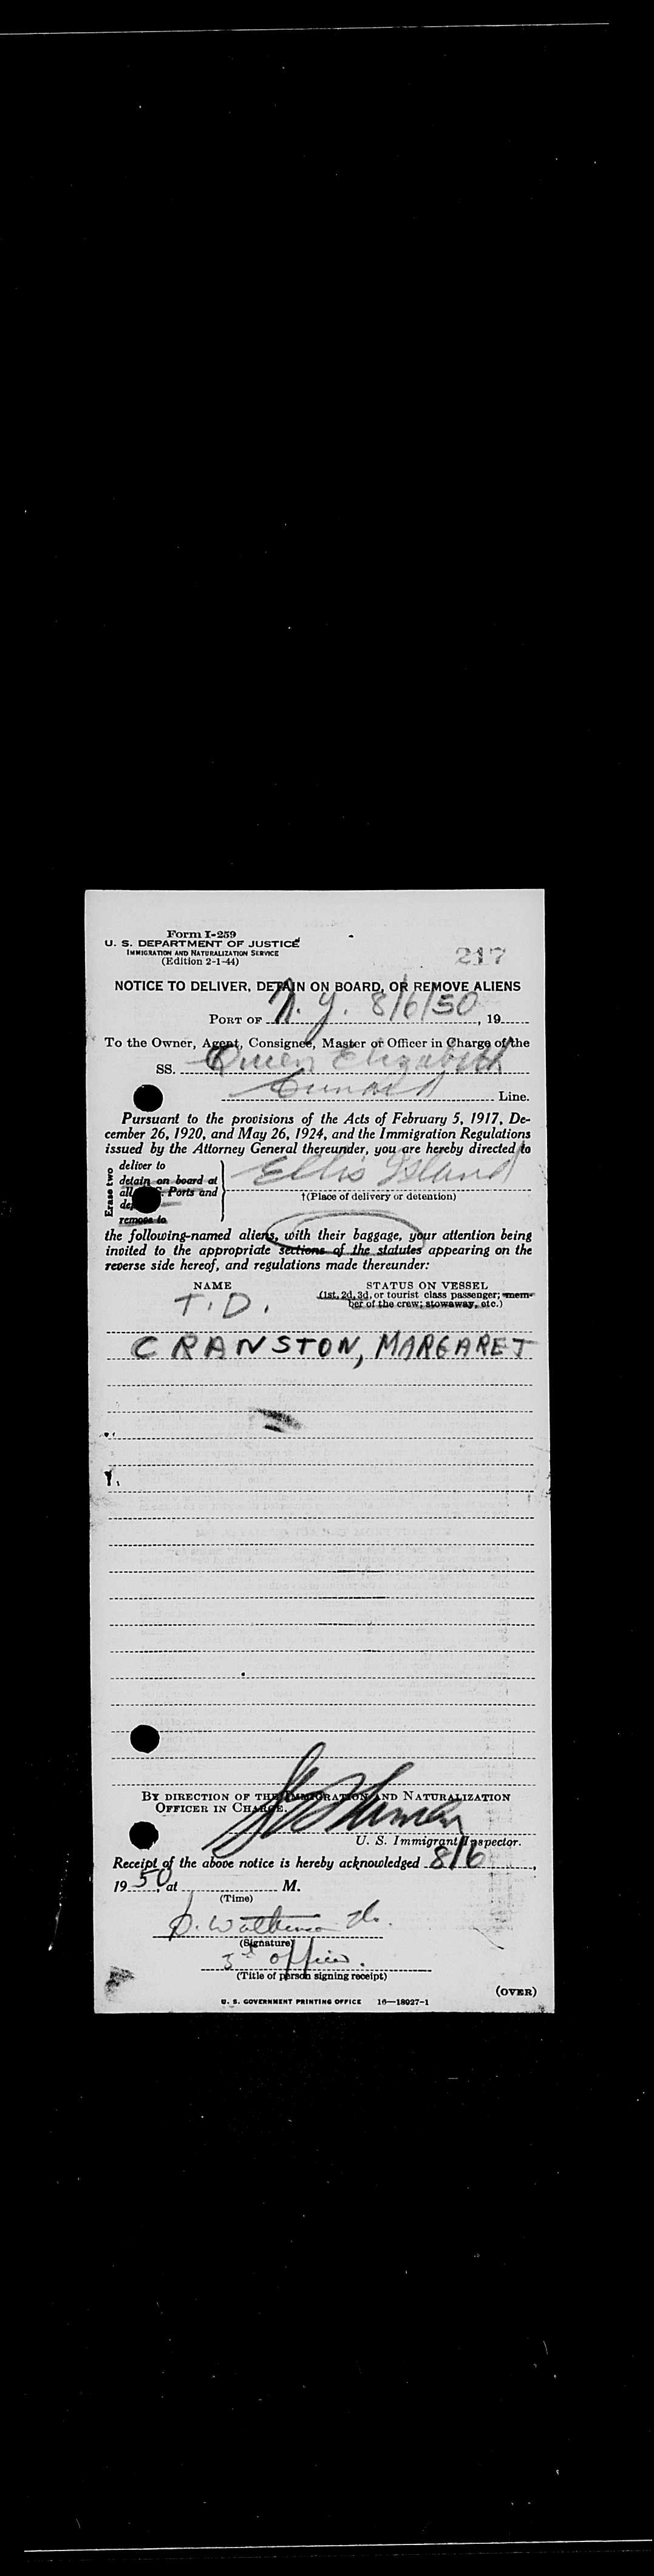 Form I-259
U. S. DEPARTMENT OF JUSTICE
IMMIGRATION AND NATURALIZATION SERVICE
(Edition 2-1-44)
217
NOTICE TO DELIVER, DETAIN ON BOARD, OR REMOVE ALIENS
PORT OF N. Y. 8/6/50, 19
To the Owner, Agent, Consignee, Master or Officer in Charge of the
SS. Queen Elizabeth
Cunard Line.
Pursuant to the provisions of the Acts of February 5, 1917, De-
cember 26, 1920, and May 26, 1924, and the Immigration Regulations
issued by the Attorney General thereunder, you are hereby directed to
Erase two
deliver to
detain on board at
all Ports and
remove to
Ellis Island
†(Place of delivery or detention)
the following-named aliens, with their baggage, your attention being
invited to the appropriate sections of the statutes appearing on the
reverse side hereof, and regulations made thereunder:
NAME STATUS ON VESSEL
(1st, 2d, 3d, or tourist class passenger; mem-
ber of the crew; stowaway, etc.)
T. D.
CRANSTON, MARGARET
BY DIRECTION OF THE IMMIGRATION AND NATURALIZATION
OFFICER IN CHARGE.
U. S. Immigrant Inspector.
Receipt of the above notice is hereby acknowledged 8/6,
19 50, at M.
(Time)
(Signature)
3rd officer.
(Title of person signing receipt)
(OVER)
U. S. GOVERNMENT PRINTING OFFICE 16—18027-1